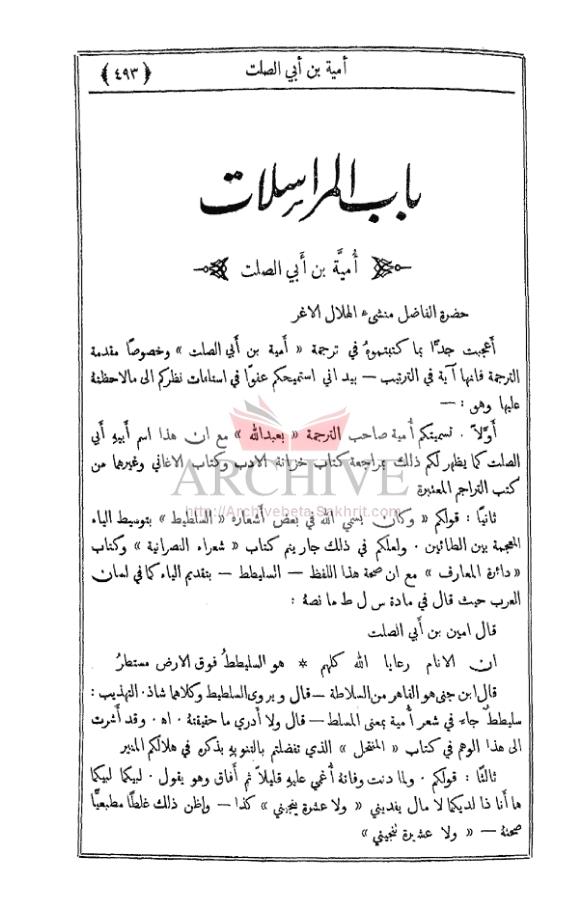 أمية بن أبي الصلت
﴿ ٤٩٣ ﴾
باب المراسلات
أُميَّة بن أَبي الصلت
حضرة الفاضل منشىء الهلال الاغر
أعجبت جدًّا بما كتبتموهُ في ترجمة « أمية بن أبي الصلت » وخصوصًا مقدمة
الترجمة فانها آية في الترتيب — بيد اني استميحكم عفوًا في استلفات نظركم الى مالاحظتهُ
عليها وهو : —
أوَّلاً . تسميتكم أمية صاحب الترجمة « بعبدالله » مع ان هذا اسم أبيهِ أبي
الصلت كما يظهر لكم ذلك بمراجعة كتاب خزانة الادب وكتاب الاغاني وغيرها من
كتب التراجم المعتبرة
ثانيًا : قولكم « وكان يسمي الله في بعض أشعاره « السلطيط » بتوسيط الياء
المعجمة بين الطائين . ولعلكم في ذلك جاريتم كتاب « شعراء النصرانية » وكتاب
« دائرة المعارف » مع ان صحة هذا اللفظ — السليطط — بتقديم الياء كما في لسان
العرب حيث قال في مادة س ل ط ما نصهُ :
قال امين بن أبي الصلت
ان الانام رعايا الله كلهم * هو السليططُ فوق الارض مستطرُ
قال ابن جنى هو القاهر من السلاطة — قال ويروى السلطيط وكلاهما شاذ . التهذيب :
سليططٌ جاء في شعر أُمية بمعنى المسلط — قال ولا أدري ما حقيقتهُ . اه . وقد أشرت
الى هذا الوهم في كتاب « المنتخل » الذي تفضلتم بالتنويه بذكرهِ في هلالكم المنير
ثالثًا : قولكم . ولما دنت وفاتهُ أُغمي عليهِ قليلاً ثم أفاق وهو يقول . لبيكما لبيكما
ها أنا ذا لديكما لا مال يفديني « ولا عشرة ينجيني » كذا — وإظن ذلك غلطًا مطبعيًّا
صحتهُ — « ولا عشيرة تنجيني »
ARCHIVE
http://Archivebeta.Sakhrit.com